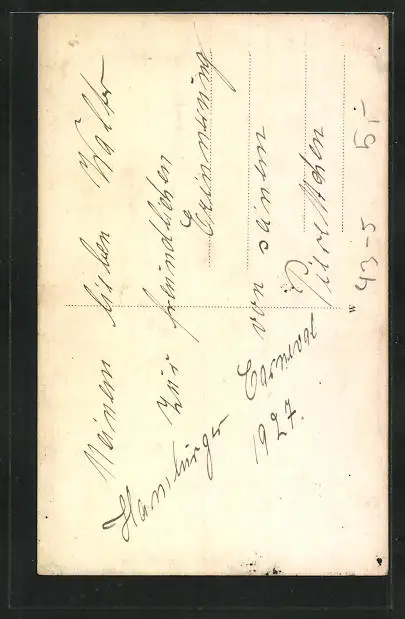 Meinem lieben Walter
zur freundlichen
Erinnerung
von seinem
Pieretchen
Hamburger Carneval
1927.
W
43-5 5,-